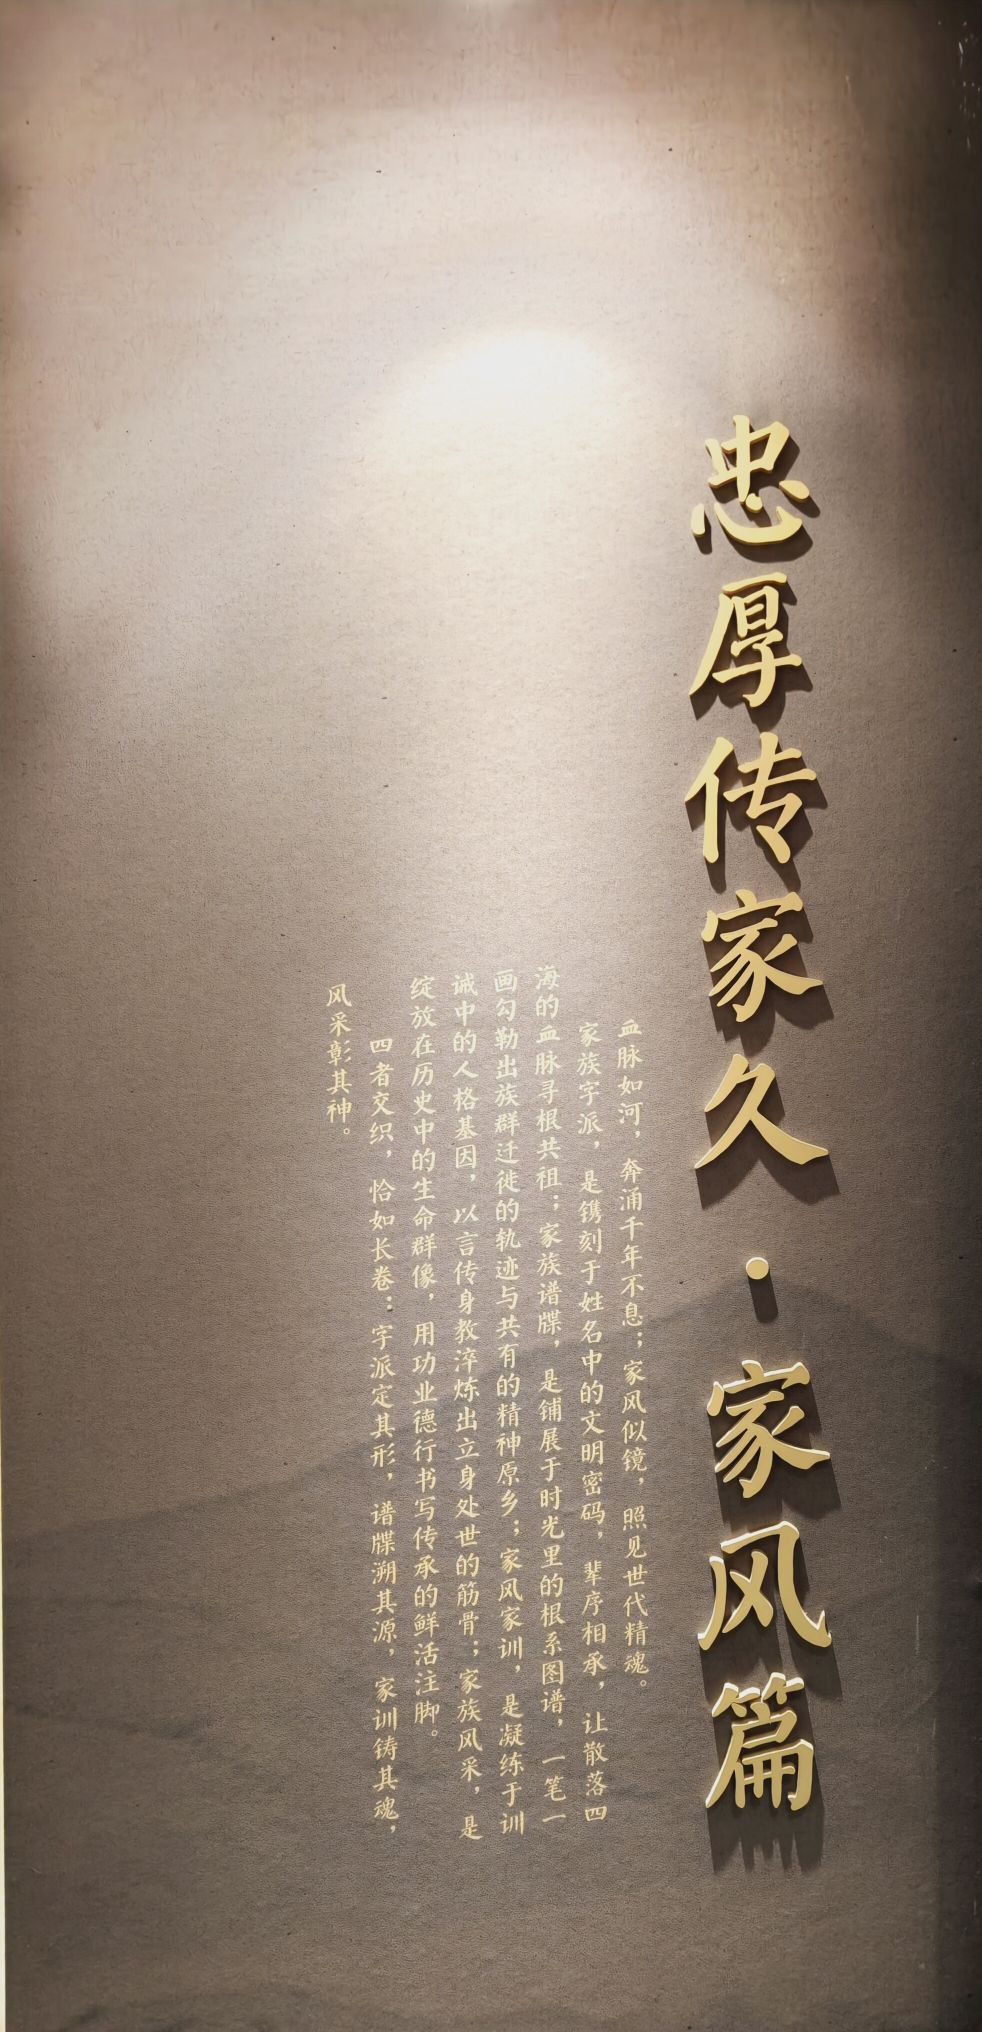 忠厚传家久·家风篇
血脉如河，奔涌千年不息；家风似镜，照见世代精魂。
家族字派，是镌刻于姓名中的文明密码，辈序相承，让散落四
海的血脉寻根共祖；家族谱牒，是铺展于时光里的根系图谱，一笔一
画勾勒出族群迁徙的轨迹与共有的精神原乡；家风家训，是凝练于训
诫中的人格基因，以言传身教淬炼出立身处世的筋骨；家族风采，是
绽放在历史中的生命群像，用功业德行书写传承的鲜活注脚。
四者交织，恰如长卷：字派定其形，谱牒溯其源，家训铸其魂，
风采彰其神。